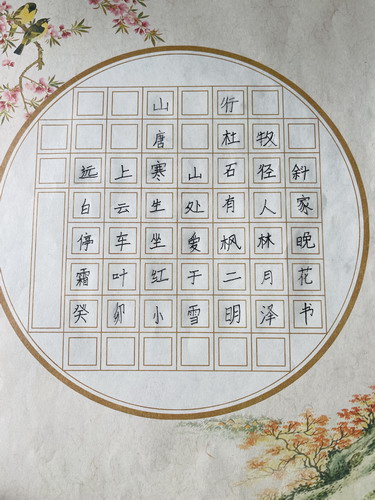 山行
唐 杜牧
远上寒山石径斜
白云生处有人家
停车坐爱枫林晚
霜叶红于二月花
癸卯小雪明泽书